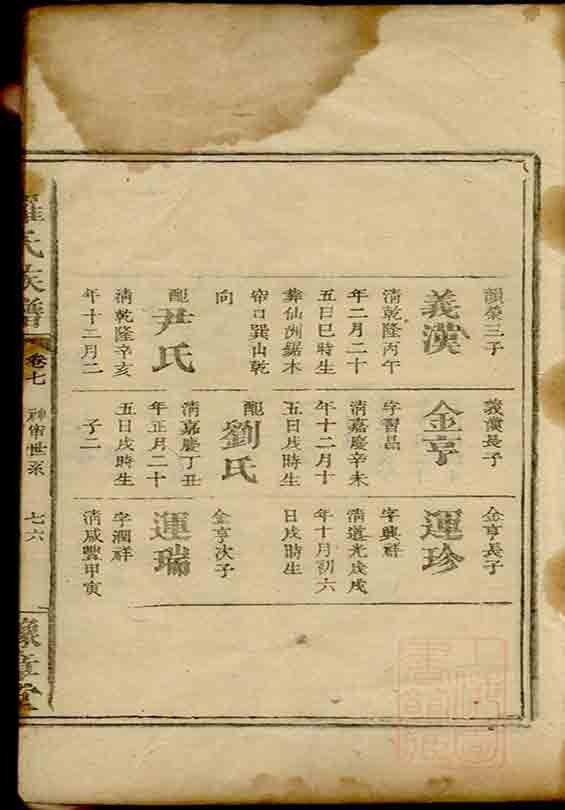 韻榮三子
義漢
清乾隆丙午
年二月二十
五日巳時生
葬仙洲鋸木
帘口巽山乾
向
配
尹氏
清乾隆辛亥
年十二月二
義漢長子
金亨
字習品
清嘉慶辛未
年十二月十
五日戌時生
配
劉氏
清嘉慶丁丑
年正月二十
五日戌時生
子二
金亨長子
運珍
字興祥
清道光戊戌
年十月初六
日戌時生
金亨次子
運瑞
字潤祥
清咸豐甲寅
羅氏族譜
卷七
世系
七六
豫章堂
上海圖書館藏